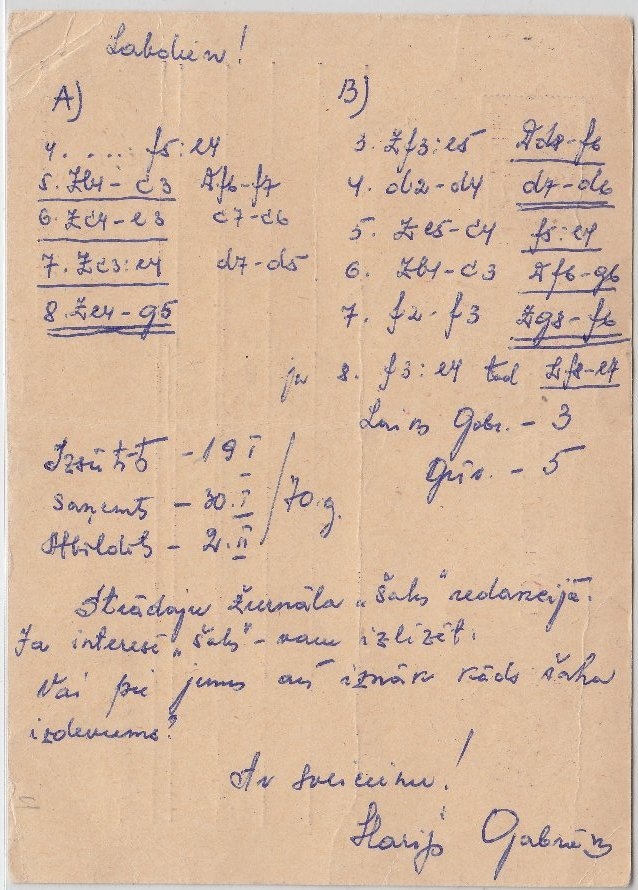 Labdien!
A)
4. .... f5:e4
5. Zb1-c3 Df6-f7
6. Zc4-e3 c7-c6
7. Zc3:e4 d7-d5
8. Ze4-g5
B)
3. Zf3:e5 Dd8-f6
4. d2-d4 d7-d6
5. Ze5-c4 f5:e4
6. Zb1-c3 Df6-g6
7. f2-f3 Zg8-f6
ja 8. f3:e4 tad Lf8-e7
Laiks Gabr. - 3
- 5
Izsūtīts - 19 I
saņemts - 30. I 70. g.
Atbildēts - 2. II
Strādāju žurnāla „Šahs" redakcijā.
Ja interesē „Šahs" - varu izlīzēt.
Vai pie jums arī iznāk kāds šaha
izdevums?
Ar sveicienu!
Harijs